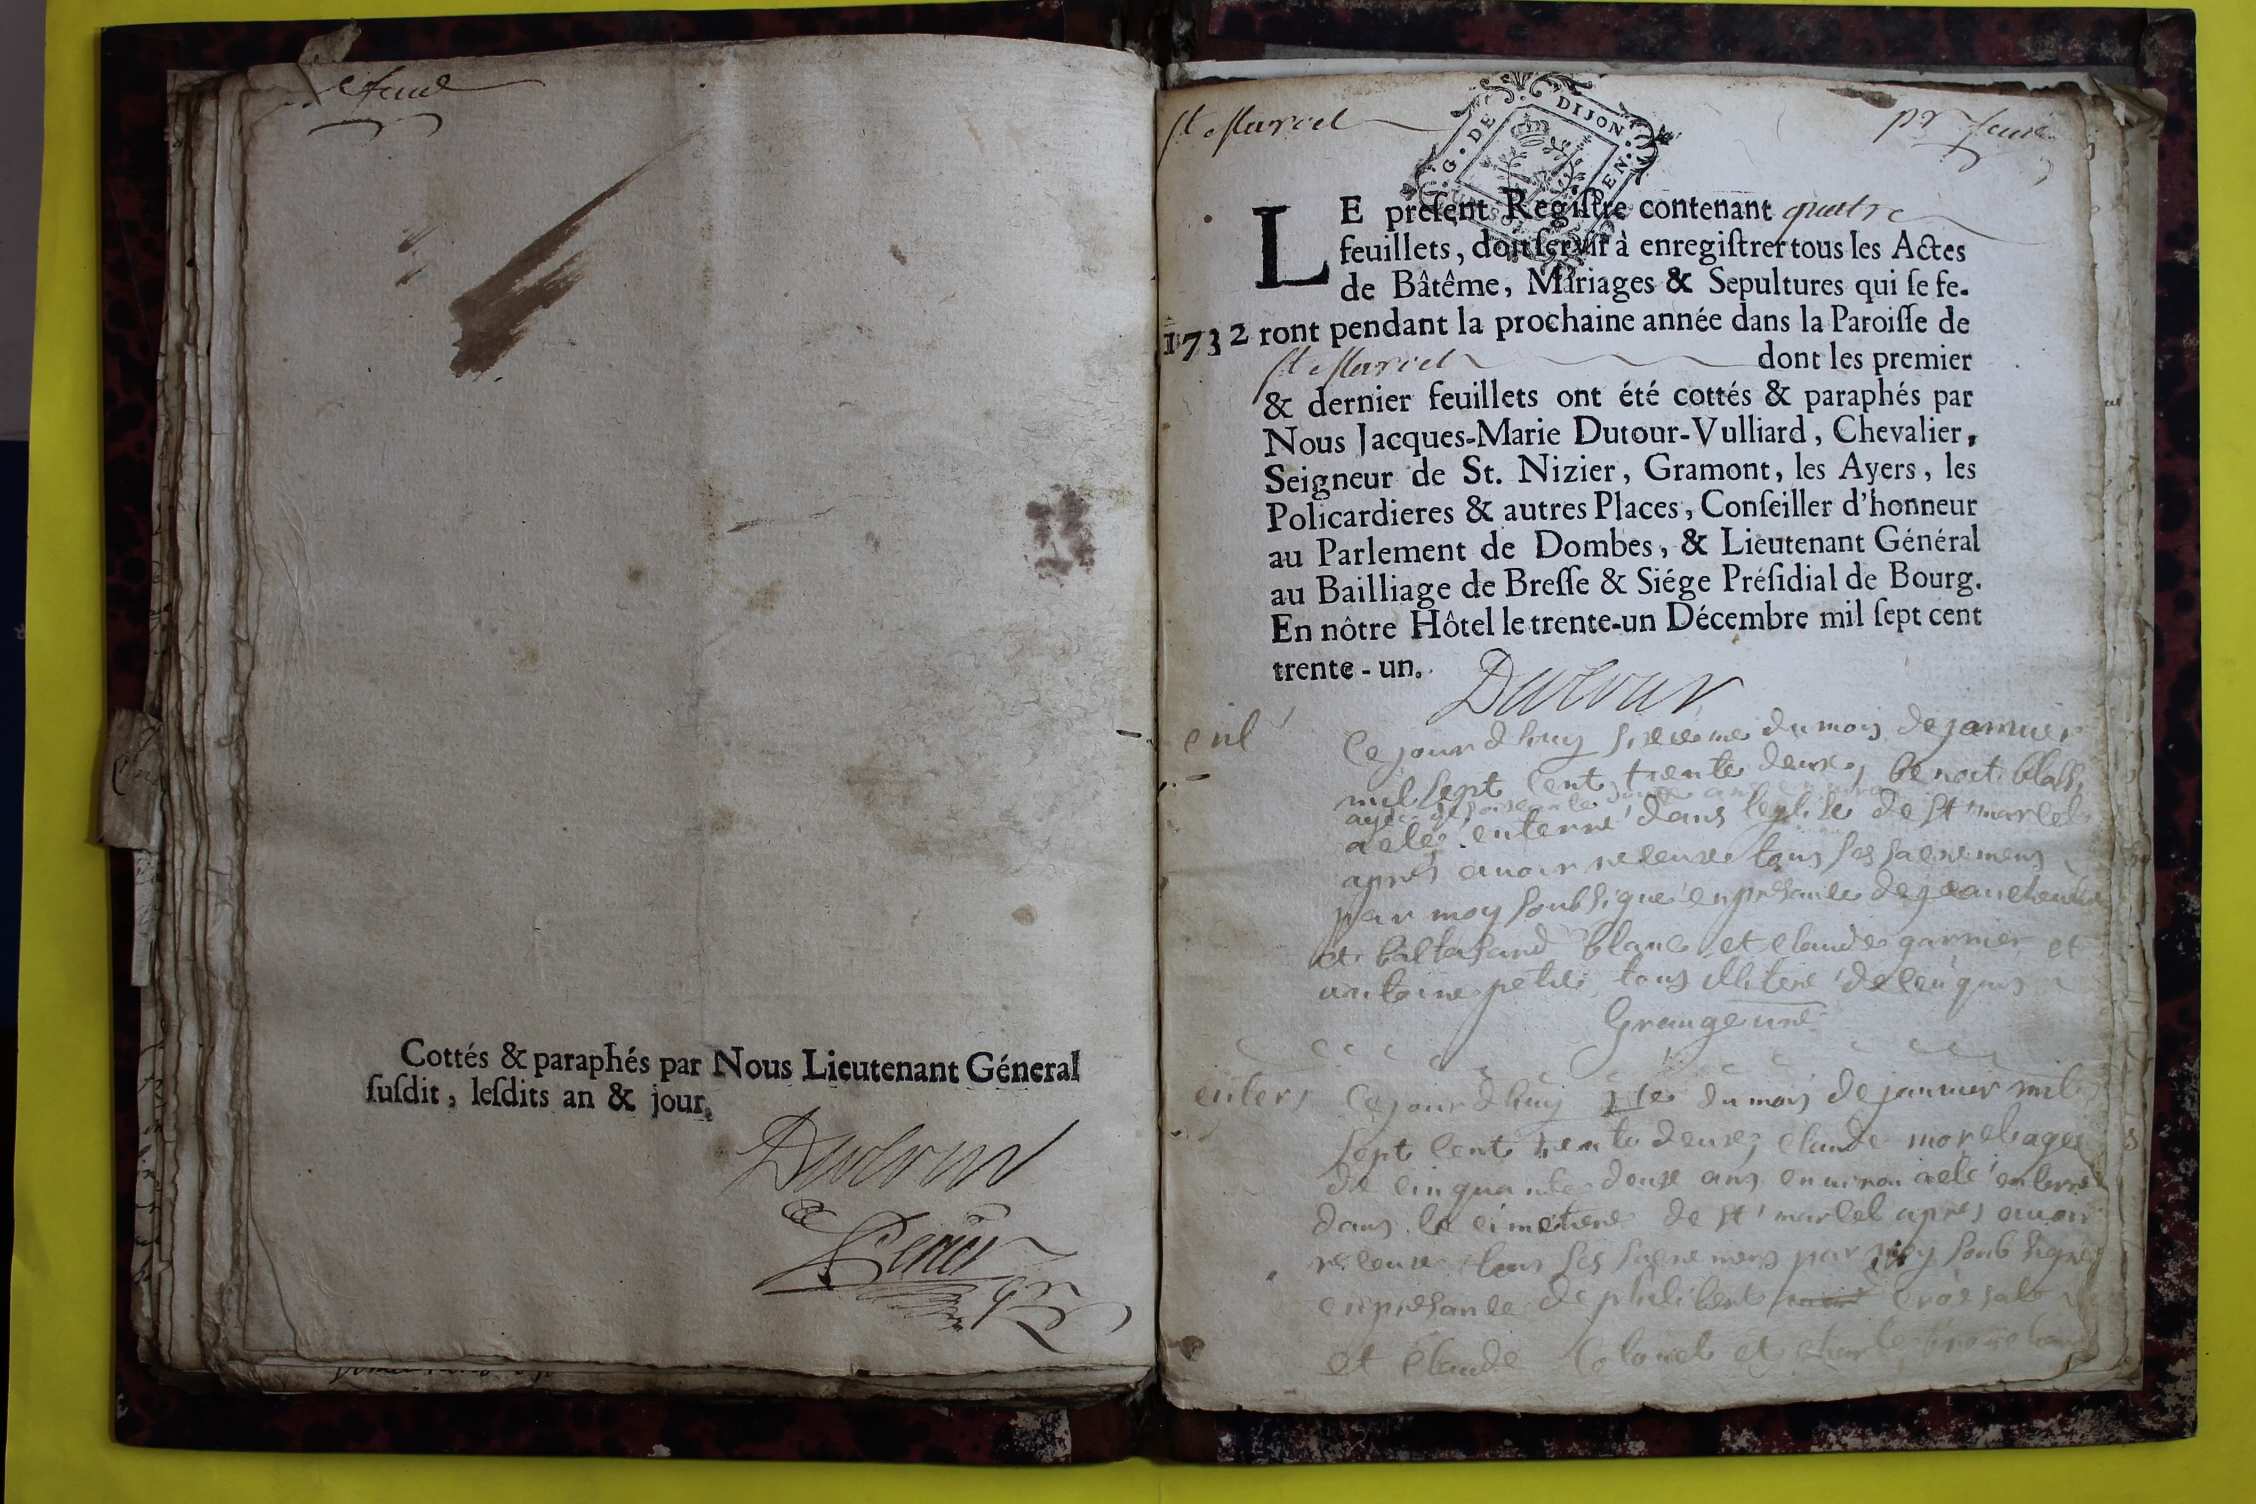 feuil
Cottés & paraphés par Nous Lieutenant Géneral
ſuſdit, leſdits an & jour.
Dutour
St Marcel
pr feuil
G. DE DIJON
LE preſent Regiſtre contenant quatre
feuillets, doit ſervir à enregiſtrer tous les Actes
de Bâtême, Mariages & Sepultures qui ſe fe-
1732 ront pendant la prochaine année dans la Paroiſſe de
St Marcel dont les premier
& dernier feuillets ont été cottés & paraphés par
Nous Jacques-Marie Dutour-Vulliard, Chevalier,
Seigneur de St. Nizier, Gramont, les Ayers, les
Policardieres & autres Places, Conſeiller d'honneur
au Parlement de Dombes, & Lieutenant Général
au Bailliage de Breſſe & Siége Préſidial de Bourg.
En nôtre Hôtel le trente-un Décembre mil ſept cent
trente-un.
Dutour
Ce jour dhuy du mois de janvier
mil sept cent trente deux, benoit
a eté enterré dans leglise de St marcel
apres avoir receu tous ses sacremens
par moy soubsigné en presance de
et baltasard blanc et claude garnier et
antoine petit tous illiteré de ce enquis
enters
Ce jour dhuy du mois de janvier mil
sept cent trente deux, claude morel agé
de cinquante deux ans environ a eté enterré
dans le cimetiere de St marcel apres avoir
receu tous ses sacremens par moy soubsigné
en presance de philibert
et claude et charle